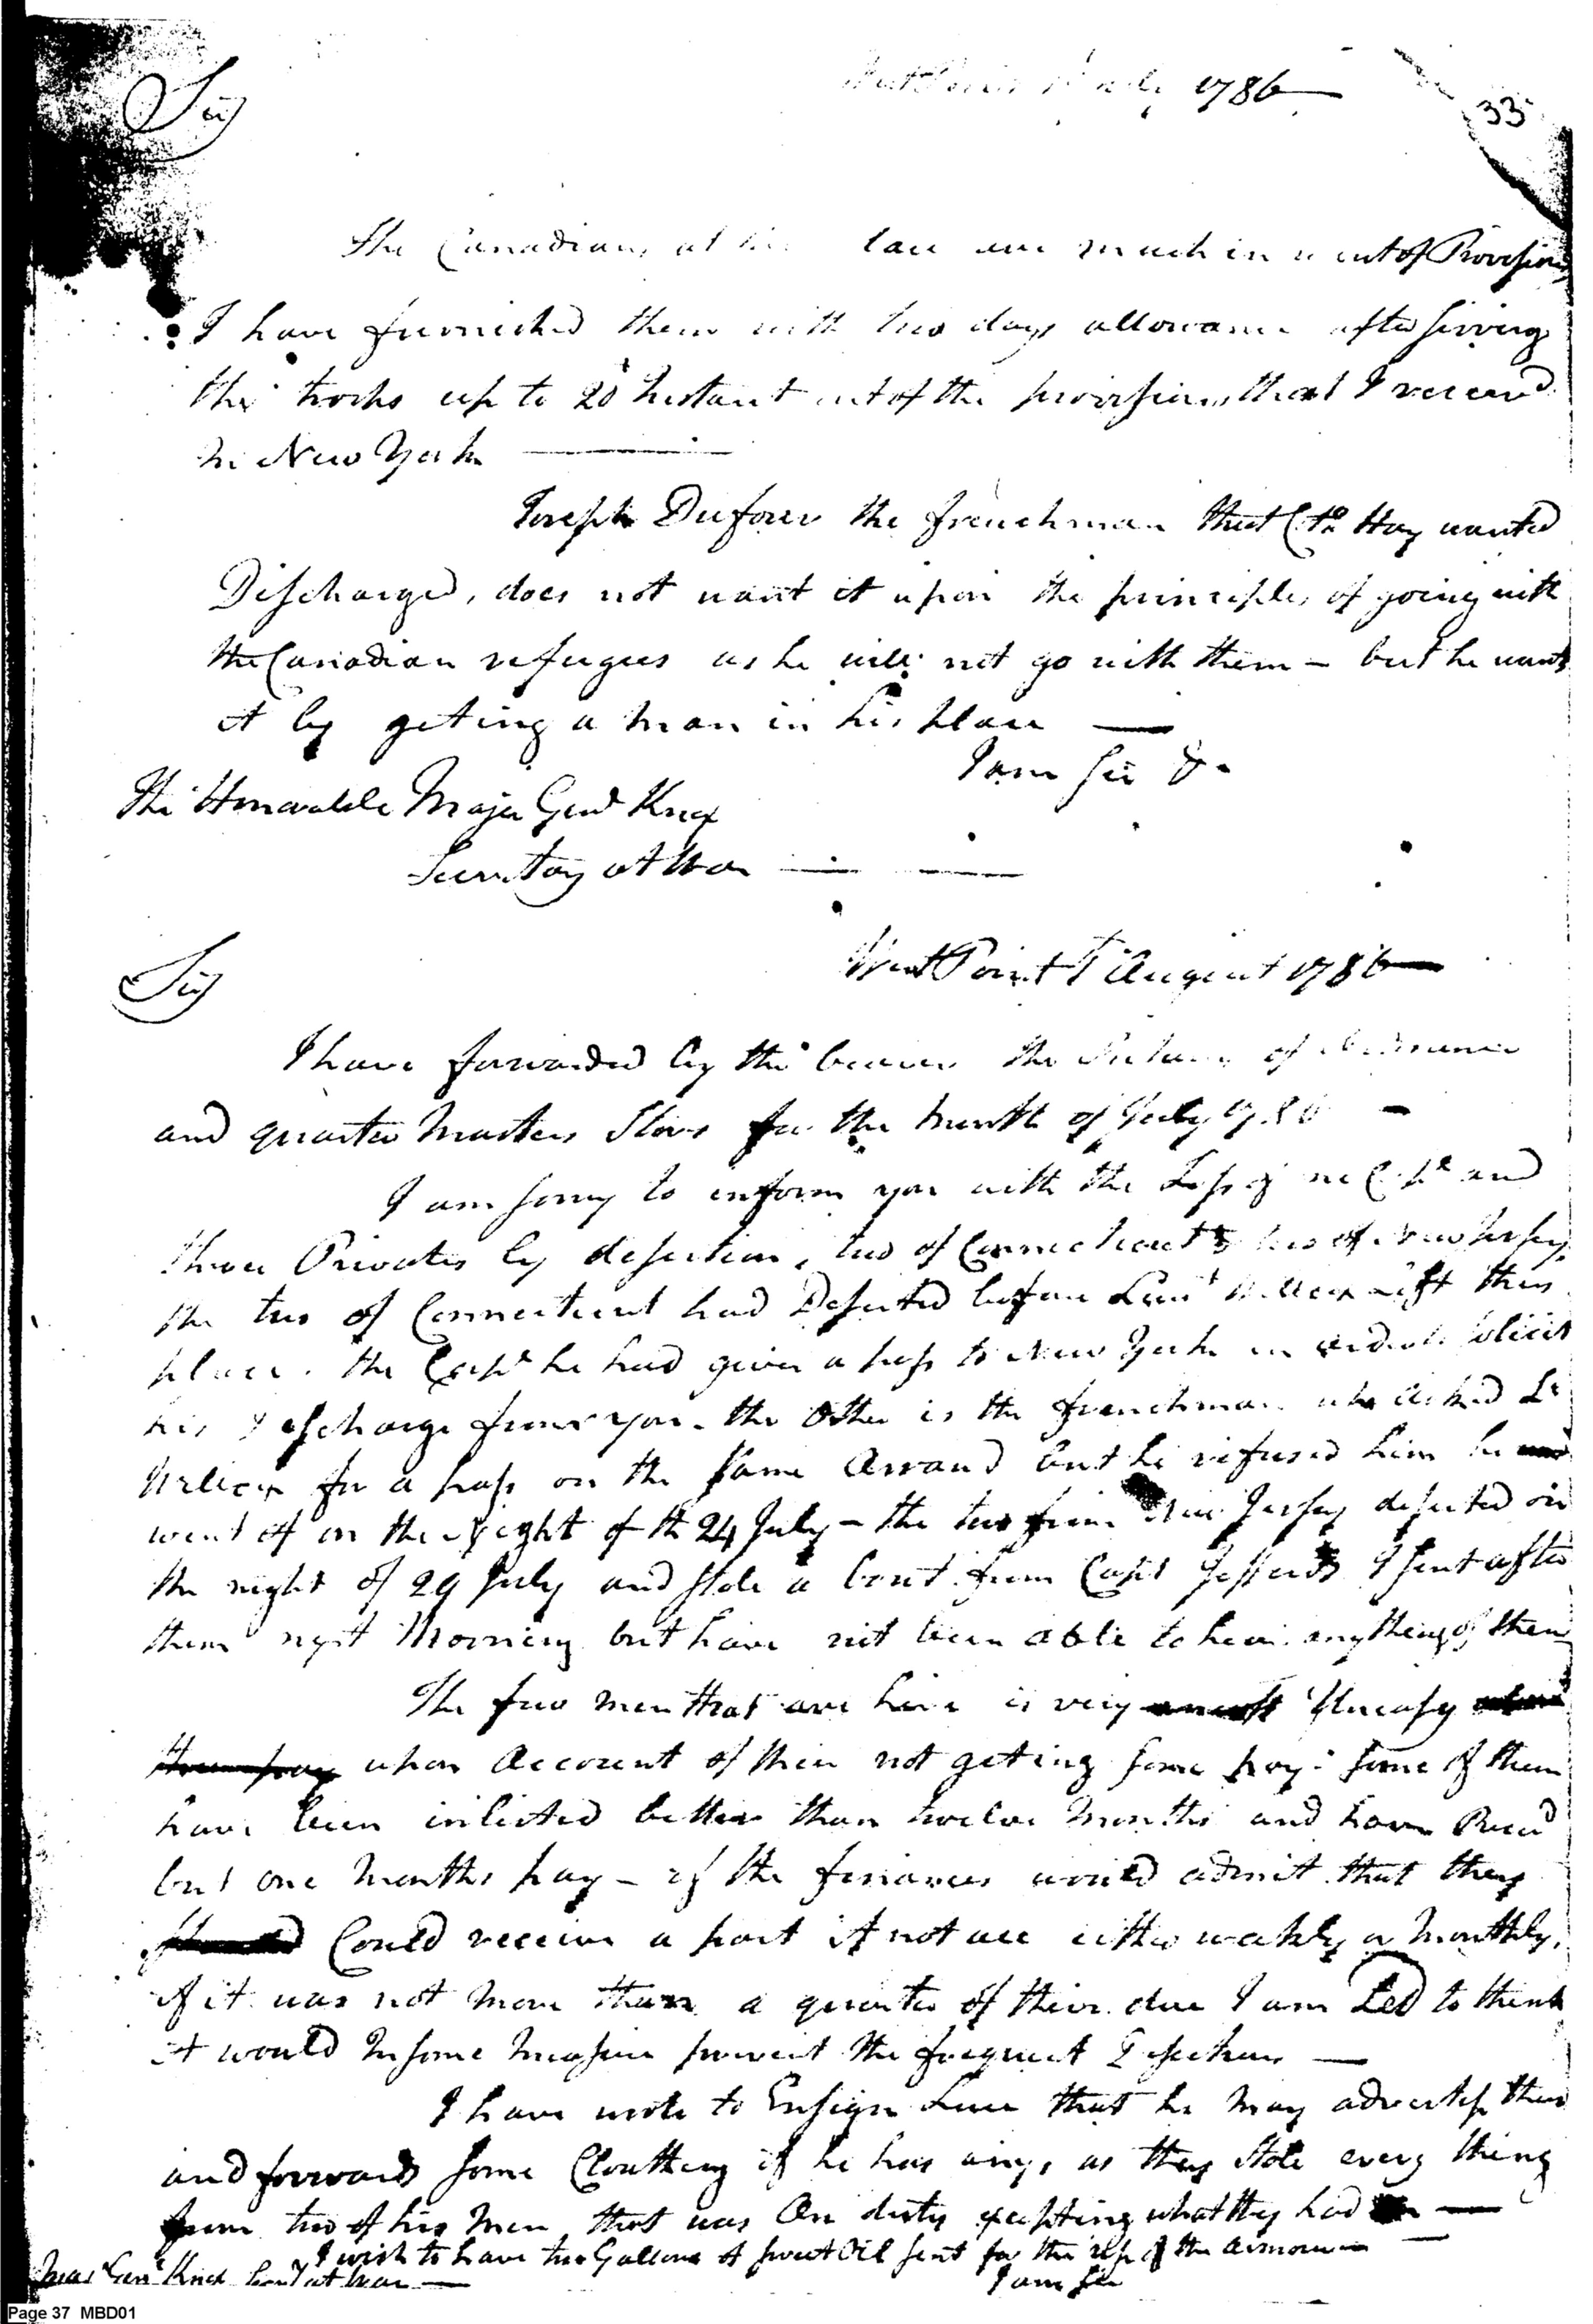 1786
33
Sir
The Canadians at lace are much in want of Provisions
I have furnished them with two days allowance after serving
the troops up to 20 Instant out of the provisions that I receivd
in New York
Joseph Dufour the frenchman that Hay wanted
Discharged, does not want it upon the principles of going with
the Canadian refugees as he will not go with them – but he wants
it by geting a man in his place
I am Sir &
The Honorable Major Genl Knox
Secretary at War
West Point 1 August 1786
Sir
I have forwarded by the bearer the of
and quarter Masters Stores for the Month of July 1786 –
I am sorry to inform you with the Loss of and
three Privates by desertion, two of Connecticut & two of New Jersey
the two of Connecticut had Deserted before Left this
place. the he had given a pass to New York in solicit
his Discharge from you. the Other is the frenchman who asked Lt
for a pass on the same Arrand but he refused him he
went of on the Night of th 24 July – the two from New Jersey deserted on
the night of 29 July and stole a boat from Capt I sent after
them next Morning but have not been able to hear any thing of them
The few men that are here is very Uneasy
upon Account of their not geting some pay. some of them
have been inlisted better than twelve Months and have Recd
but one Months pay – if the finances would admit that they
Could receive a part if not all either weakly or Monthly,
if it was not more than a quarter of their due I am Led to think
it would In some Measure prevent the frequent Desertions
I have wrote to Ensign that he may advertise them
and forward some Cloathing if he has any, as they Stole every thing
from two of his Men that was On duty excepting what they had on
I wish to have two Gallons of sweet Oil sent for the use of the Armourer
Knox at War
I am Sir
Page 37 MBD01